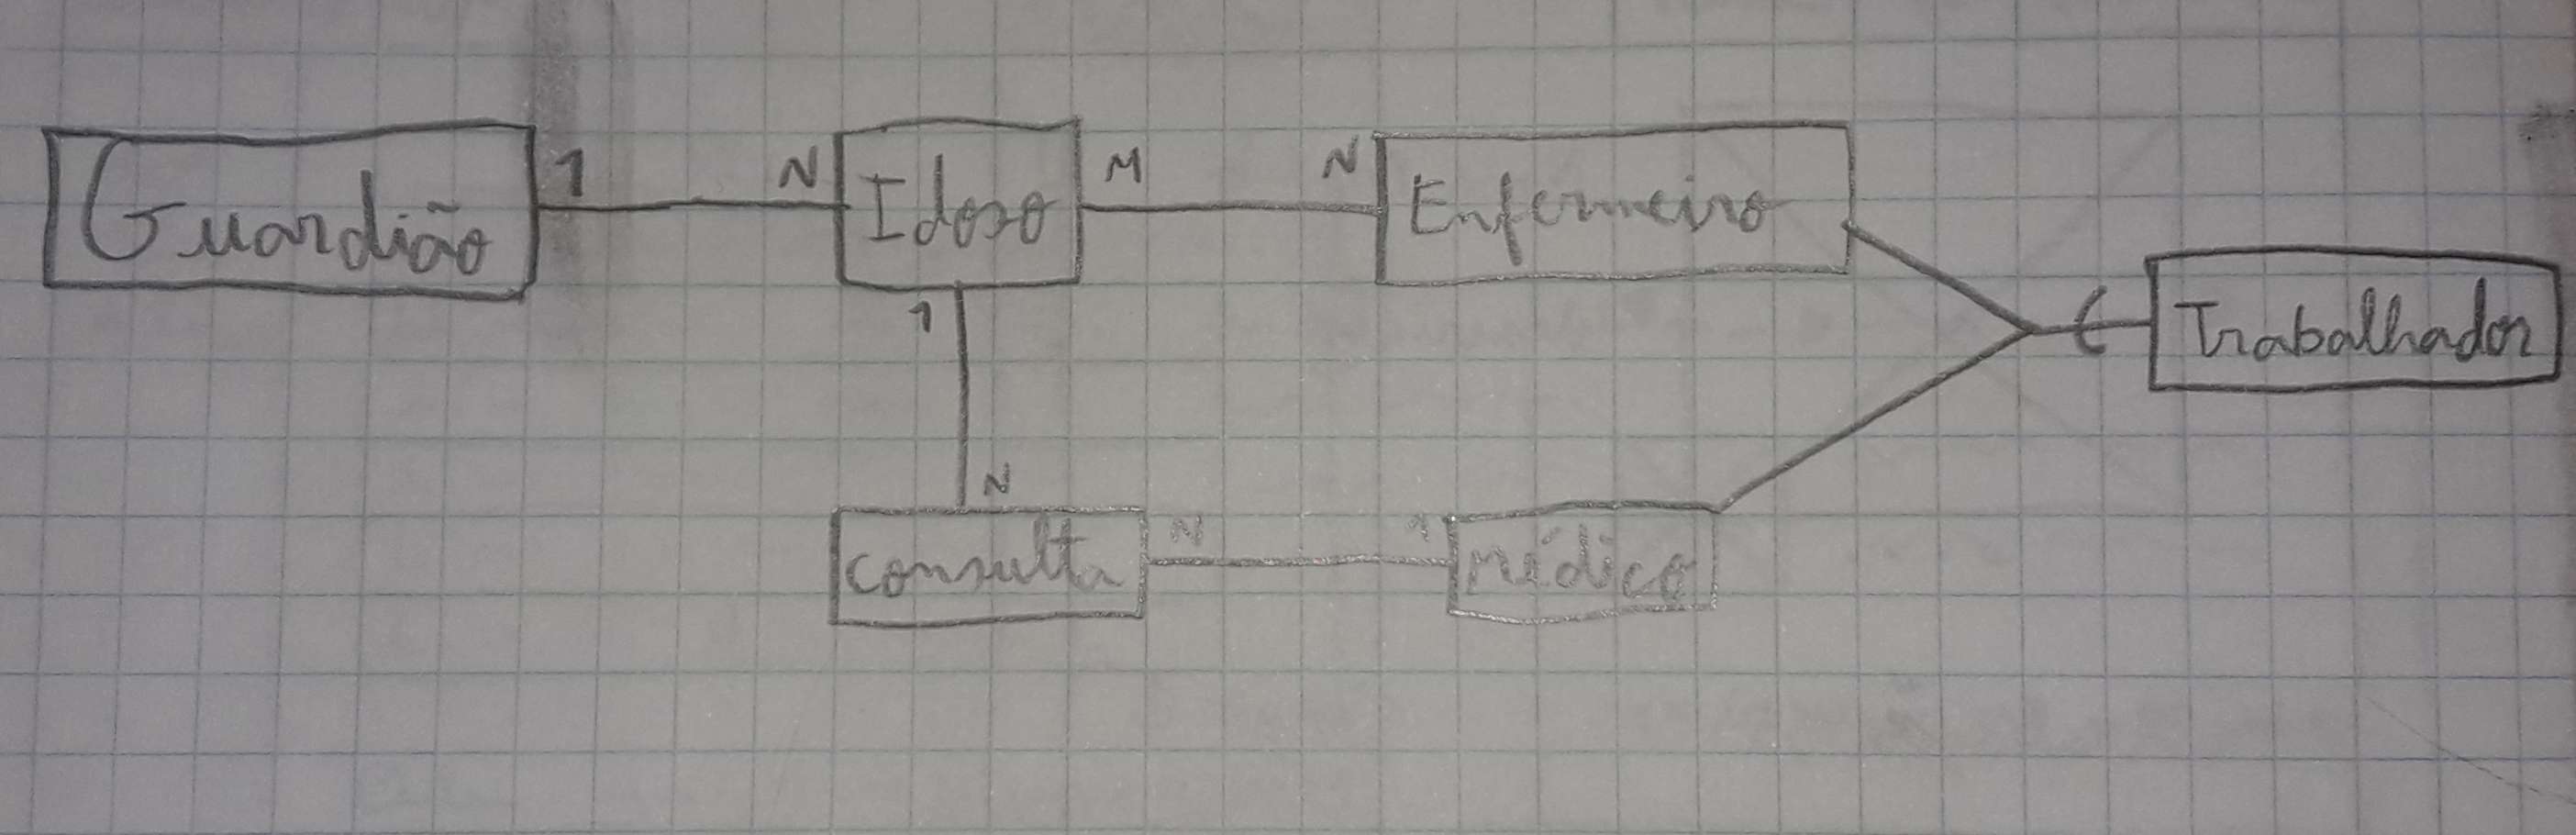 Guardião 1 N Idoso M N Enfermeiro
Trabalhador
1
N
consulta N 1 médico